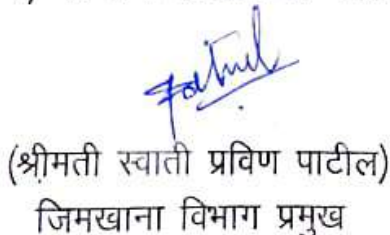 (श्रीमती स्वाती प्रविण पाटील)
जिमखाना विभाग प्रमुख